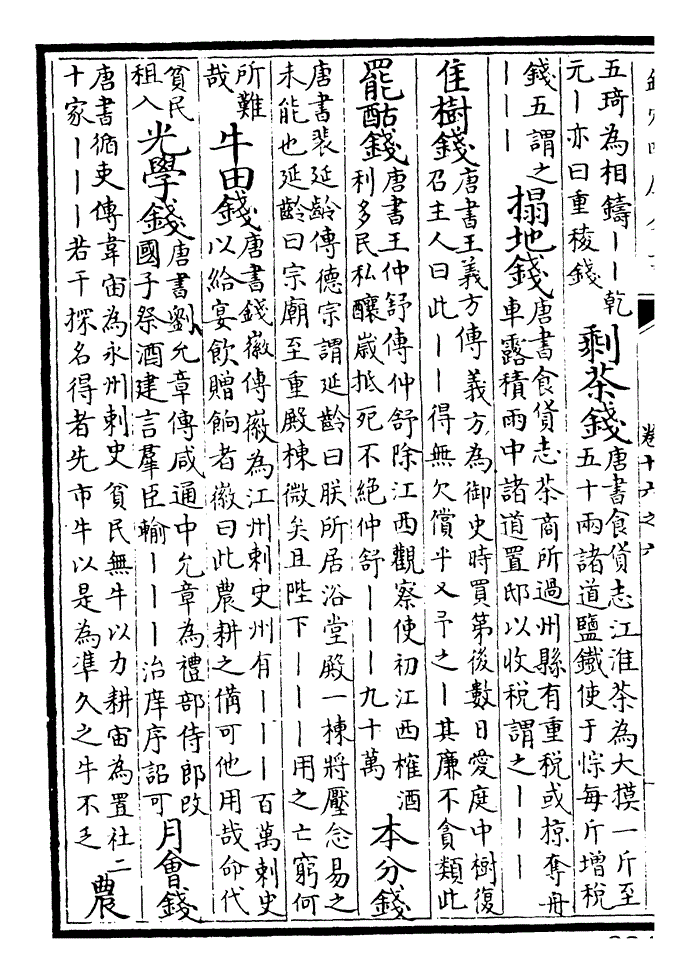 卷十六之六
五琦為相鑄｜｜乾
元｜亦曰重稜錢
剩茶錢
唐書食貨志江淮茶為大摸一斤至
五十兩諸道鹽鐵使于悰每斤增稅
錢五謂之
｜｜｜
搨地錢
唐書食貨志茶商所過州縣有重稅或掠奪舟
車露積雨中諸道置邸以收稅謂之｜｜｜
住樹錢
唐書王義方傳義方為御史時買第後數日愛庭中樹復
召主人曰此｜｜得無欠償乎又予之｜其廉不貪類此
罷酤錢
唐書王仲舒傳仲舒除江西觀察使初江西榷酒
利多民私釀嵗抵死不絕仲舒｜｜｜九十萬
本分錢
唐書裴延齡傳德宗謂延齡曰朕所居浴堂殿一棟將壓念易之
未能也延齡曰宗廟至重殿棟微矣且陛下｜｜｜用之亡窮何
所難
哉
牛田錢
唐書錢徽傳徽為江州刺史州有｜｜｜百萬刺史
以給宴飲贈餉者徽曰此農耕之備可他用哉命代
貧民
租入
光學錢
唐書劉允章傳咸通中允章為禮部侍郎改
國子祭酒建言羣臣輸｜｜｜治庠序詔可
月會錢
唐書循吏傳韋宙為永州刺史貧民無牛以力耕宙為置社二
十家｜｜｜若干探名得者先市牛以是為準久之牛不乏
農